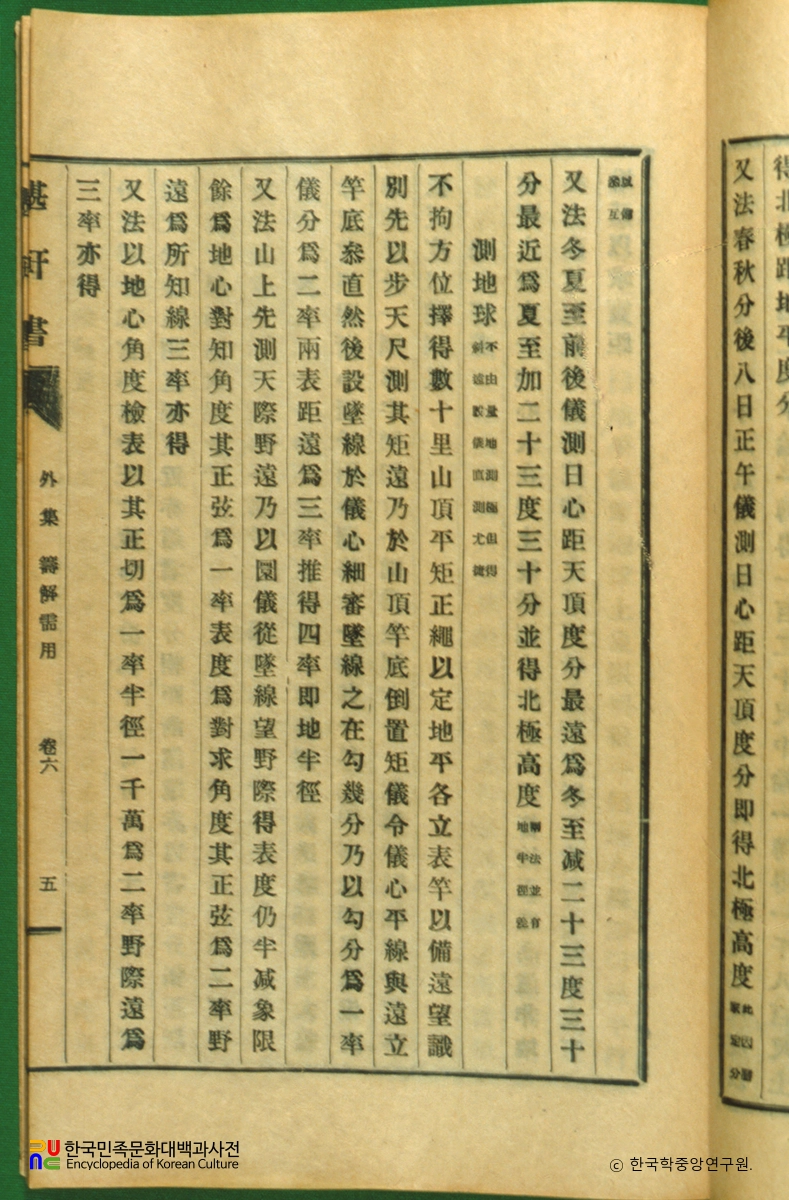 又法春秋分後八日正午儀測日心距天頂度分即得北極高度
又法冬夏至前後儀測日心距天頂度分最遠爲冬至减二十三度三十
分最近爲夏至加二十三度三十分並得北極高度
測地球不由量地測極但得
斜遠設儀直測尤
不拘方位擇得數十里山頂平矩正繩以定地平各立表竿以備遠望識
別先以步天尺測其矩遠乃於山頂竿底倒置矩儀令儀心平線與遠立
竿底叅直然後設墜線於儀心細審墜線之在勾幾分乃以勾分爲一率
儀分爲二率兩表距遠爲三率推得四率即地半徑
又法山上先測天際野遠乃以圜儀從墜線望野際得表度仍半减象限
餘爲地心對知角度其正弦爲一率表度爲對求角度其正弦爲二率野
遠爲所知線三率亦得
又法以地心角度檢表以其正切爲一率半徑一千萬爲二率野際遠爲
三率亦得
湛軒書
外集 籌解需用
卷六
五
한국민족문화대백과사전
Encyclopedia of Korean Culture
ⓒ 한국학중앙연구원.